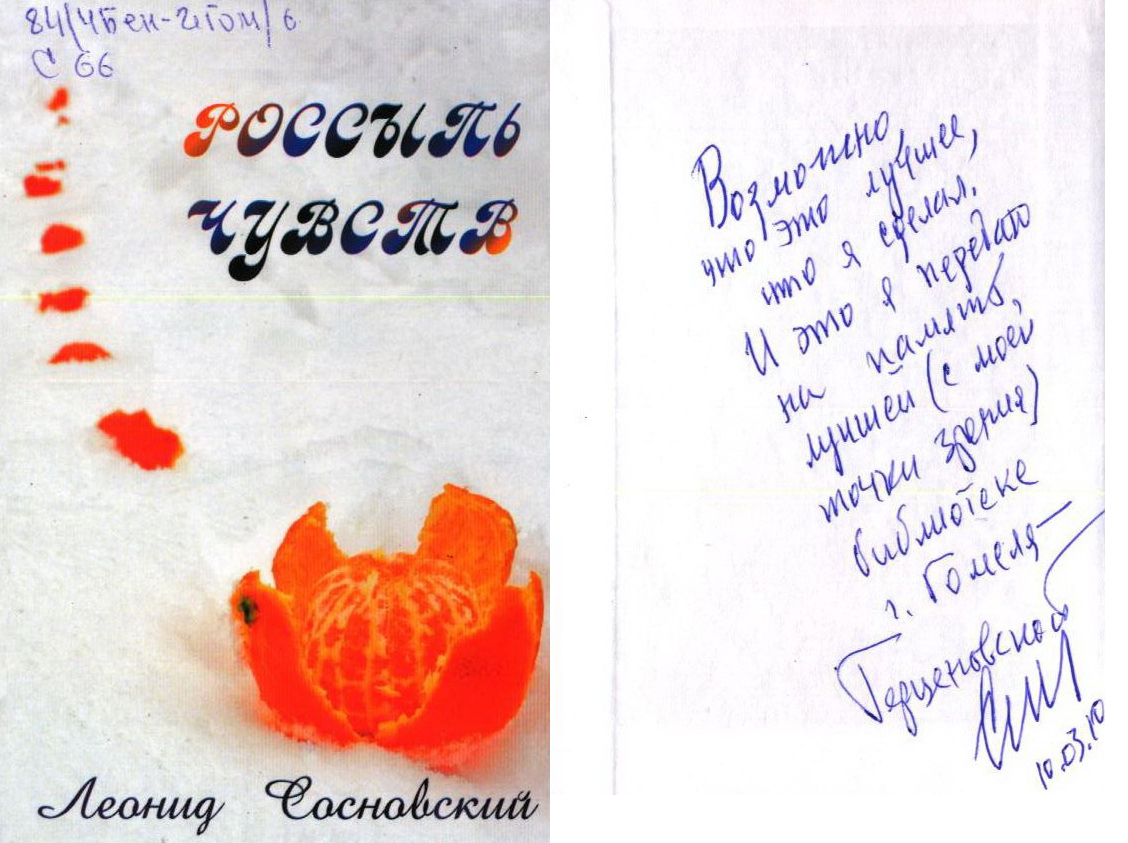 84(4Беи-4Гом)6
С 66
РОССЫПЬ
ЧУВСТВ
Леонид Сосновский
Возможно
что это лучшее,
что я сделал.
И это я передаю
на память,
лучшей (с моей
точки зрения)
библиотеке
г. Гомеля —
Герценовской
10.03.10